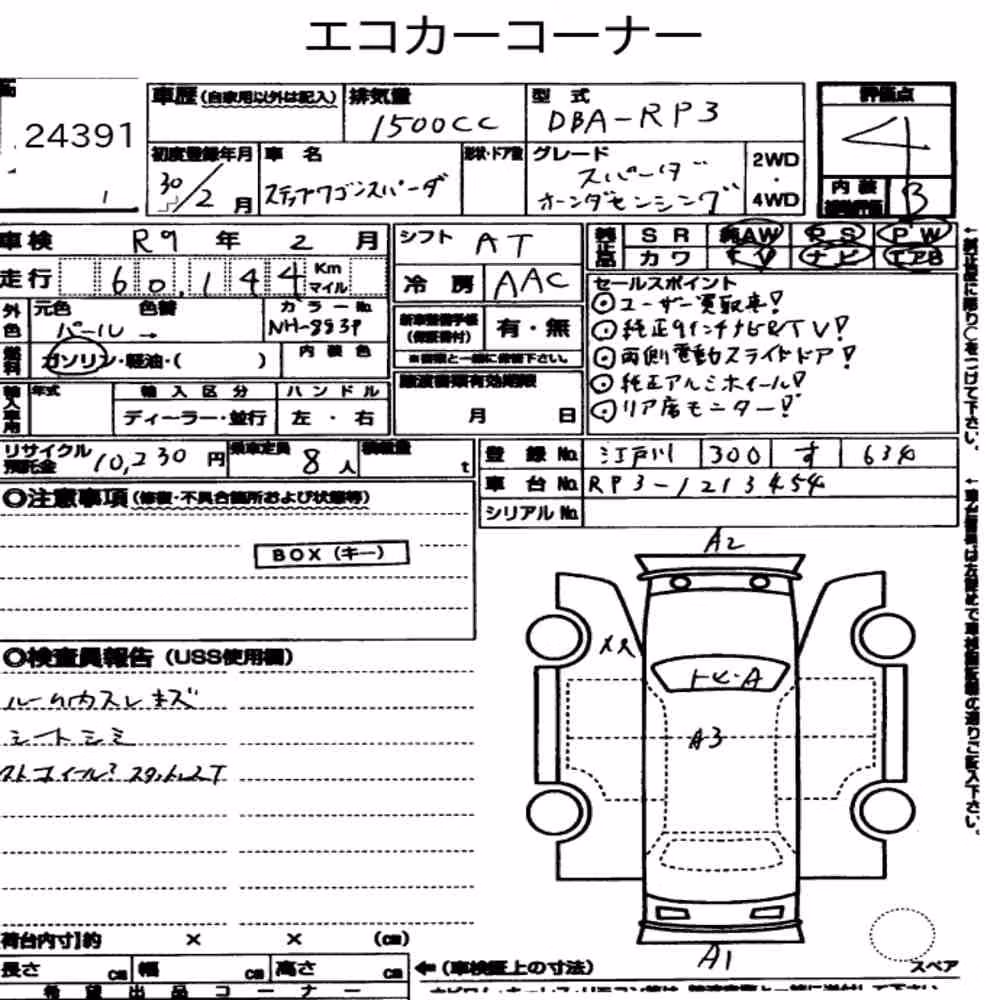 エコカーコーナー
24391
1
車歴 (自家用以外は記入) 排気量 1500CC 型式 DBA-RP3 評価点 4
初度登録年月 30/2月 車名 ステップワゴンスパーダ 形状・ドア数 グレード スパーダ ホンダセンシング 2WD・4WD 内装 B
車検 R9年 2月 シフト AT 純正品 SR 純AW PS PW
走行 60,144 Km マイル 冷房 AAC カワ TV ナビ エアB
外色 元色 パール → 色替 カラーNo. NH-883P 新車整備手帳 (保証書付) 有・無
※書類と一緒に保管下さい。
燃料 ガソリン・軽油・( ) 内装色
譲渡書類有効期限 月 日
輸入車用 年式 輸入区分 ディーラー・並行 ハンドル 左・右
セールスポイント
ユーザー買取車!
純正9インチナビR/TV!
両側電動スライドドア!
純正アルミホイール!
リア席モニター!
リサイクル預託金 10,230円 乗車定員 8人 積載量 t
登録No. 江戸川 300 す 634
車台No. RP3-1213454
シリアルNo.
◎注意事項 (修復・不具合箇所および状態等)
BOX(キー)
◎検査員報告 (USS使用欄)
ルーム内スレキズ
シートシミ
A2
トビ・A
A3
A1
スペア
荷台内寸】約 × × (㎝)
長さ ㎝ 幅 ㎝ 高さ ㎝ ←(車検証上の寸法)
希望出品コーナー